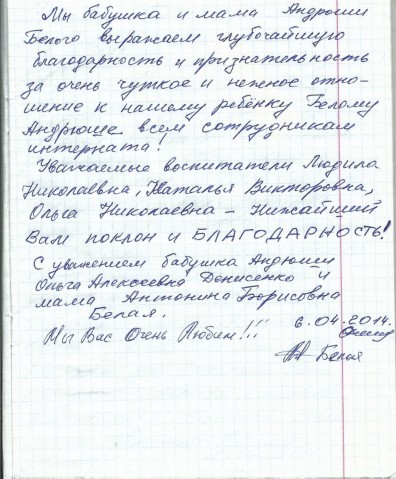 Мы бабушка и мама Андрюши
Белого выражаем глубочайшую
благодарность и признательность
за очень чуткое и нежное отно-
шение к нашему ребёнку Белому
Андрюше всем сотрудникам
интерната!
Уважаемые воспитатели Людмила
Николаевна, Наталья Викторовна,
Ольга Николаевна – Нижайший
Вам поклон и БЛАГОДАРНОСТЬ!
С уважением бабушка Андрюши
Ольга Алексеевна Денисенко и
мама Антонина Борисовна
Белая.
6.04.2014.
Мы Вас Очень Любим!!!
Белая